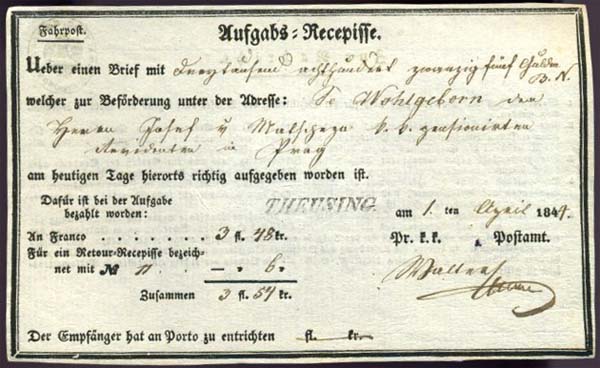 Fahrpost.
Aufgabs=Recepisse.
Ueber einen Brief mit dreytausend achthundert zwanzig fünf Gulden
B. N.
welcher zur Beförderung unter der Adresse: Se Wohlgeborn den
Herrn Josef v k. k. pensionirten
in Prag
am heutigen Tage hierorts richtig aufgegeben worden ist.
Dafür ist bei der Aufgabe
bezahlt worden:
THEUSING.
am 1. ten April 1844.
An Franco . . . . . . . 3 fl. 48 kr.
Pr. k. k. Postamt.
Für ein Retour=Recepisse bezeich=
net mit № 11 — „ 6 „
Zusammen 3 fl. 54 kr.
Der Empfänger hat an Porto zu entrichten fl. kr.